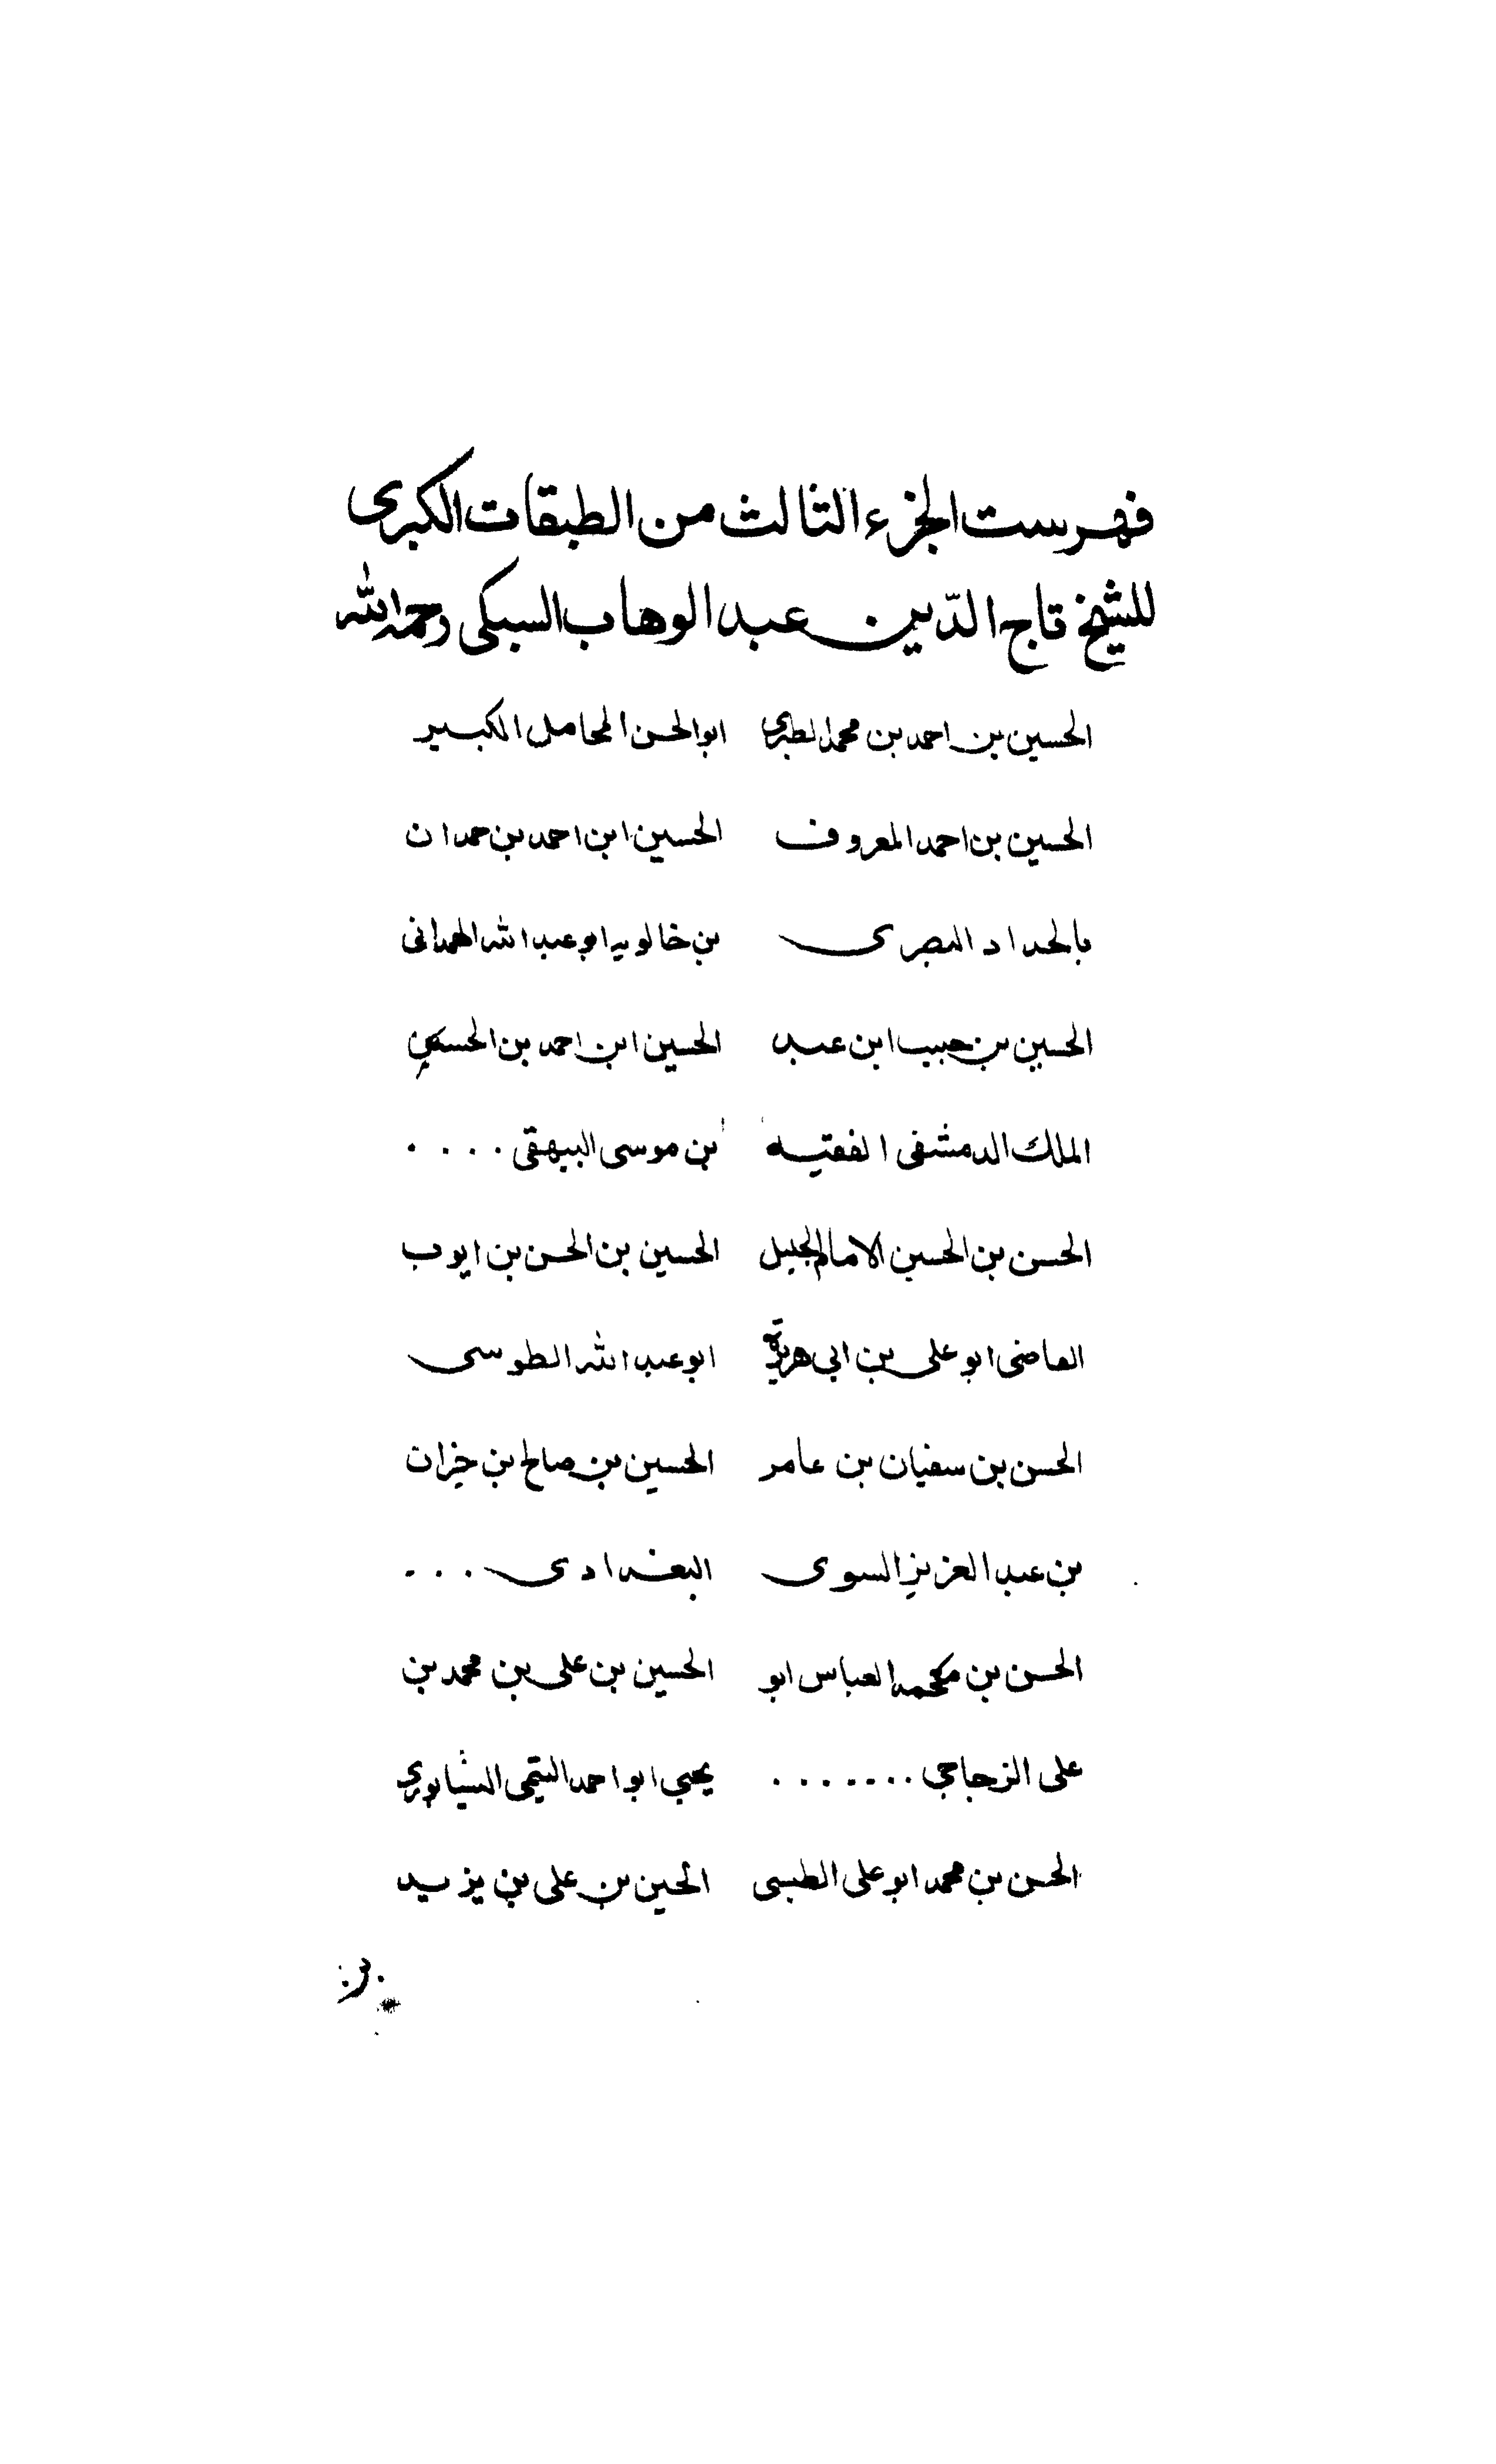 فهرست الجزء الثالث من الطبقات الكبرى
للشيخ تاج الدّين عبد الوهاب السبكى رحمه الله
الحسين بن احمد بن محمد الطبرى ابو الحسن المحاملى الكبير
الحسين بن احمد المعروف الحسين ابن احمد بن حمدان
بالحداد البصرى بن خالويه ابو عبد الله الهمدانى
الحسين بن حبيب ابن عبد الحسين ابن احمد بن الحسن
الملك الدمشقى الفقيه بن موسى البيهقى ....
الحسن بن الحسين الامام الجليل الحسين بن الحسن بن ايوب
القاضى ابو على بن ابى هريرة ابو عبد الله الطوسى
الحسن بن سفيان بن عامر الحسين بن صالح بن خيران
بن عبد العزيز النسوى البغدادى ...
الحسن بن محمد العباس ابو الحسين بن على بن محمد بن
على الزجاجى ....... يحيى ابو احمد التميمى النيسابورى
الحسن بن محمد ابو على الطبسى الحسين بن على بن يزيد
بن